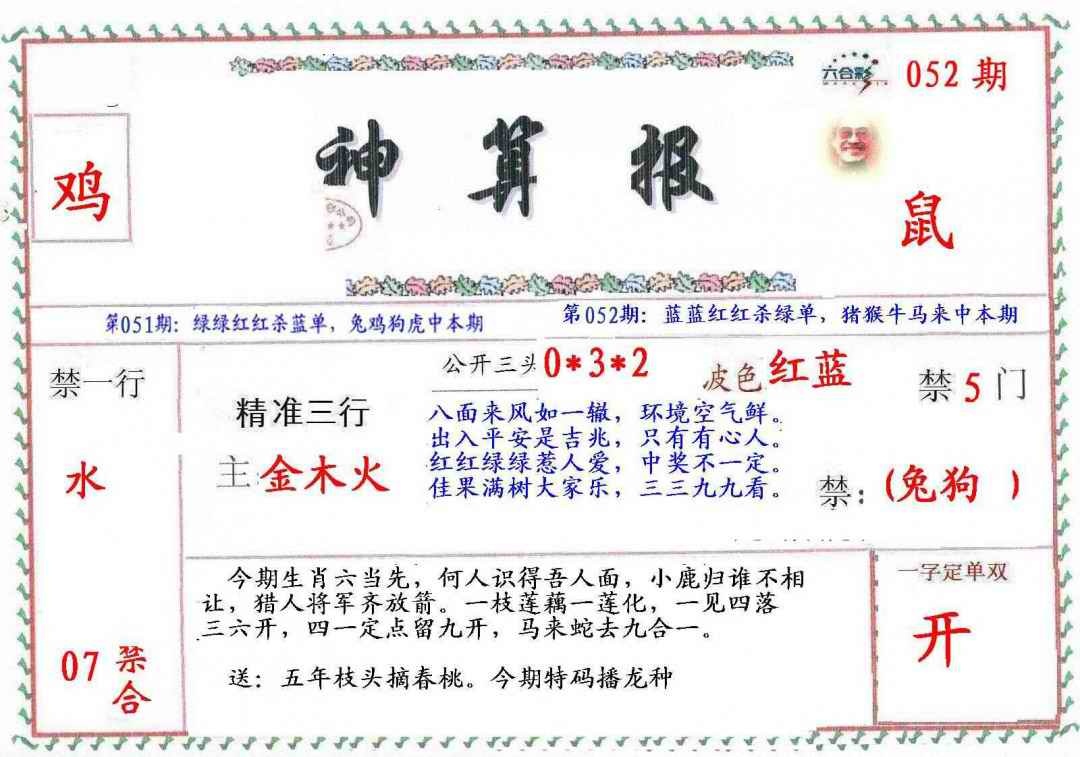 六合彩
052 期
神算报
鸡
鼠
第051期：绿绿红红杀蓝单，兔鸡狗虎中本期
第052期：蓝蓝红红杀绿单，猪猴牛马来中本期
禁一行
水
07 禁合
精准三行
主：金木火
公开三头 0*3*2
波色 红蓝
八面来风如一辙，环境空气鲜。
出入平安是吉兆，只有有心人。
红红绿绿惹人爱，中奖不一定。
佳果满树大家乐，三三九九看。
禁 5 门
禁：(兔狗 )
今期生肖六当先，何人识得吾人面，小鹿归谁不相
让，猎人将军齐放箭。一枝莲藕一莲化，一见四落
三六开，四一定点留九开，马来蛇去九合一。
送：五年枝头摘春桃。今期特码播龙种
一字定单双
开